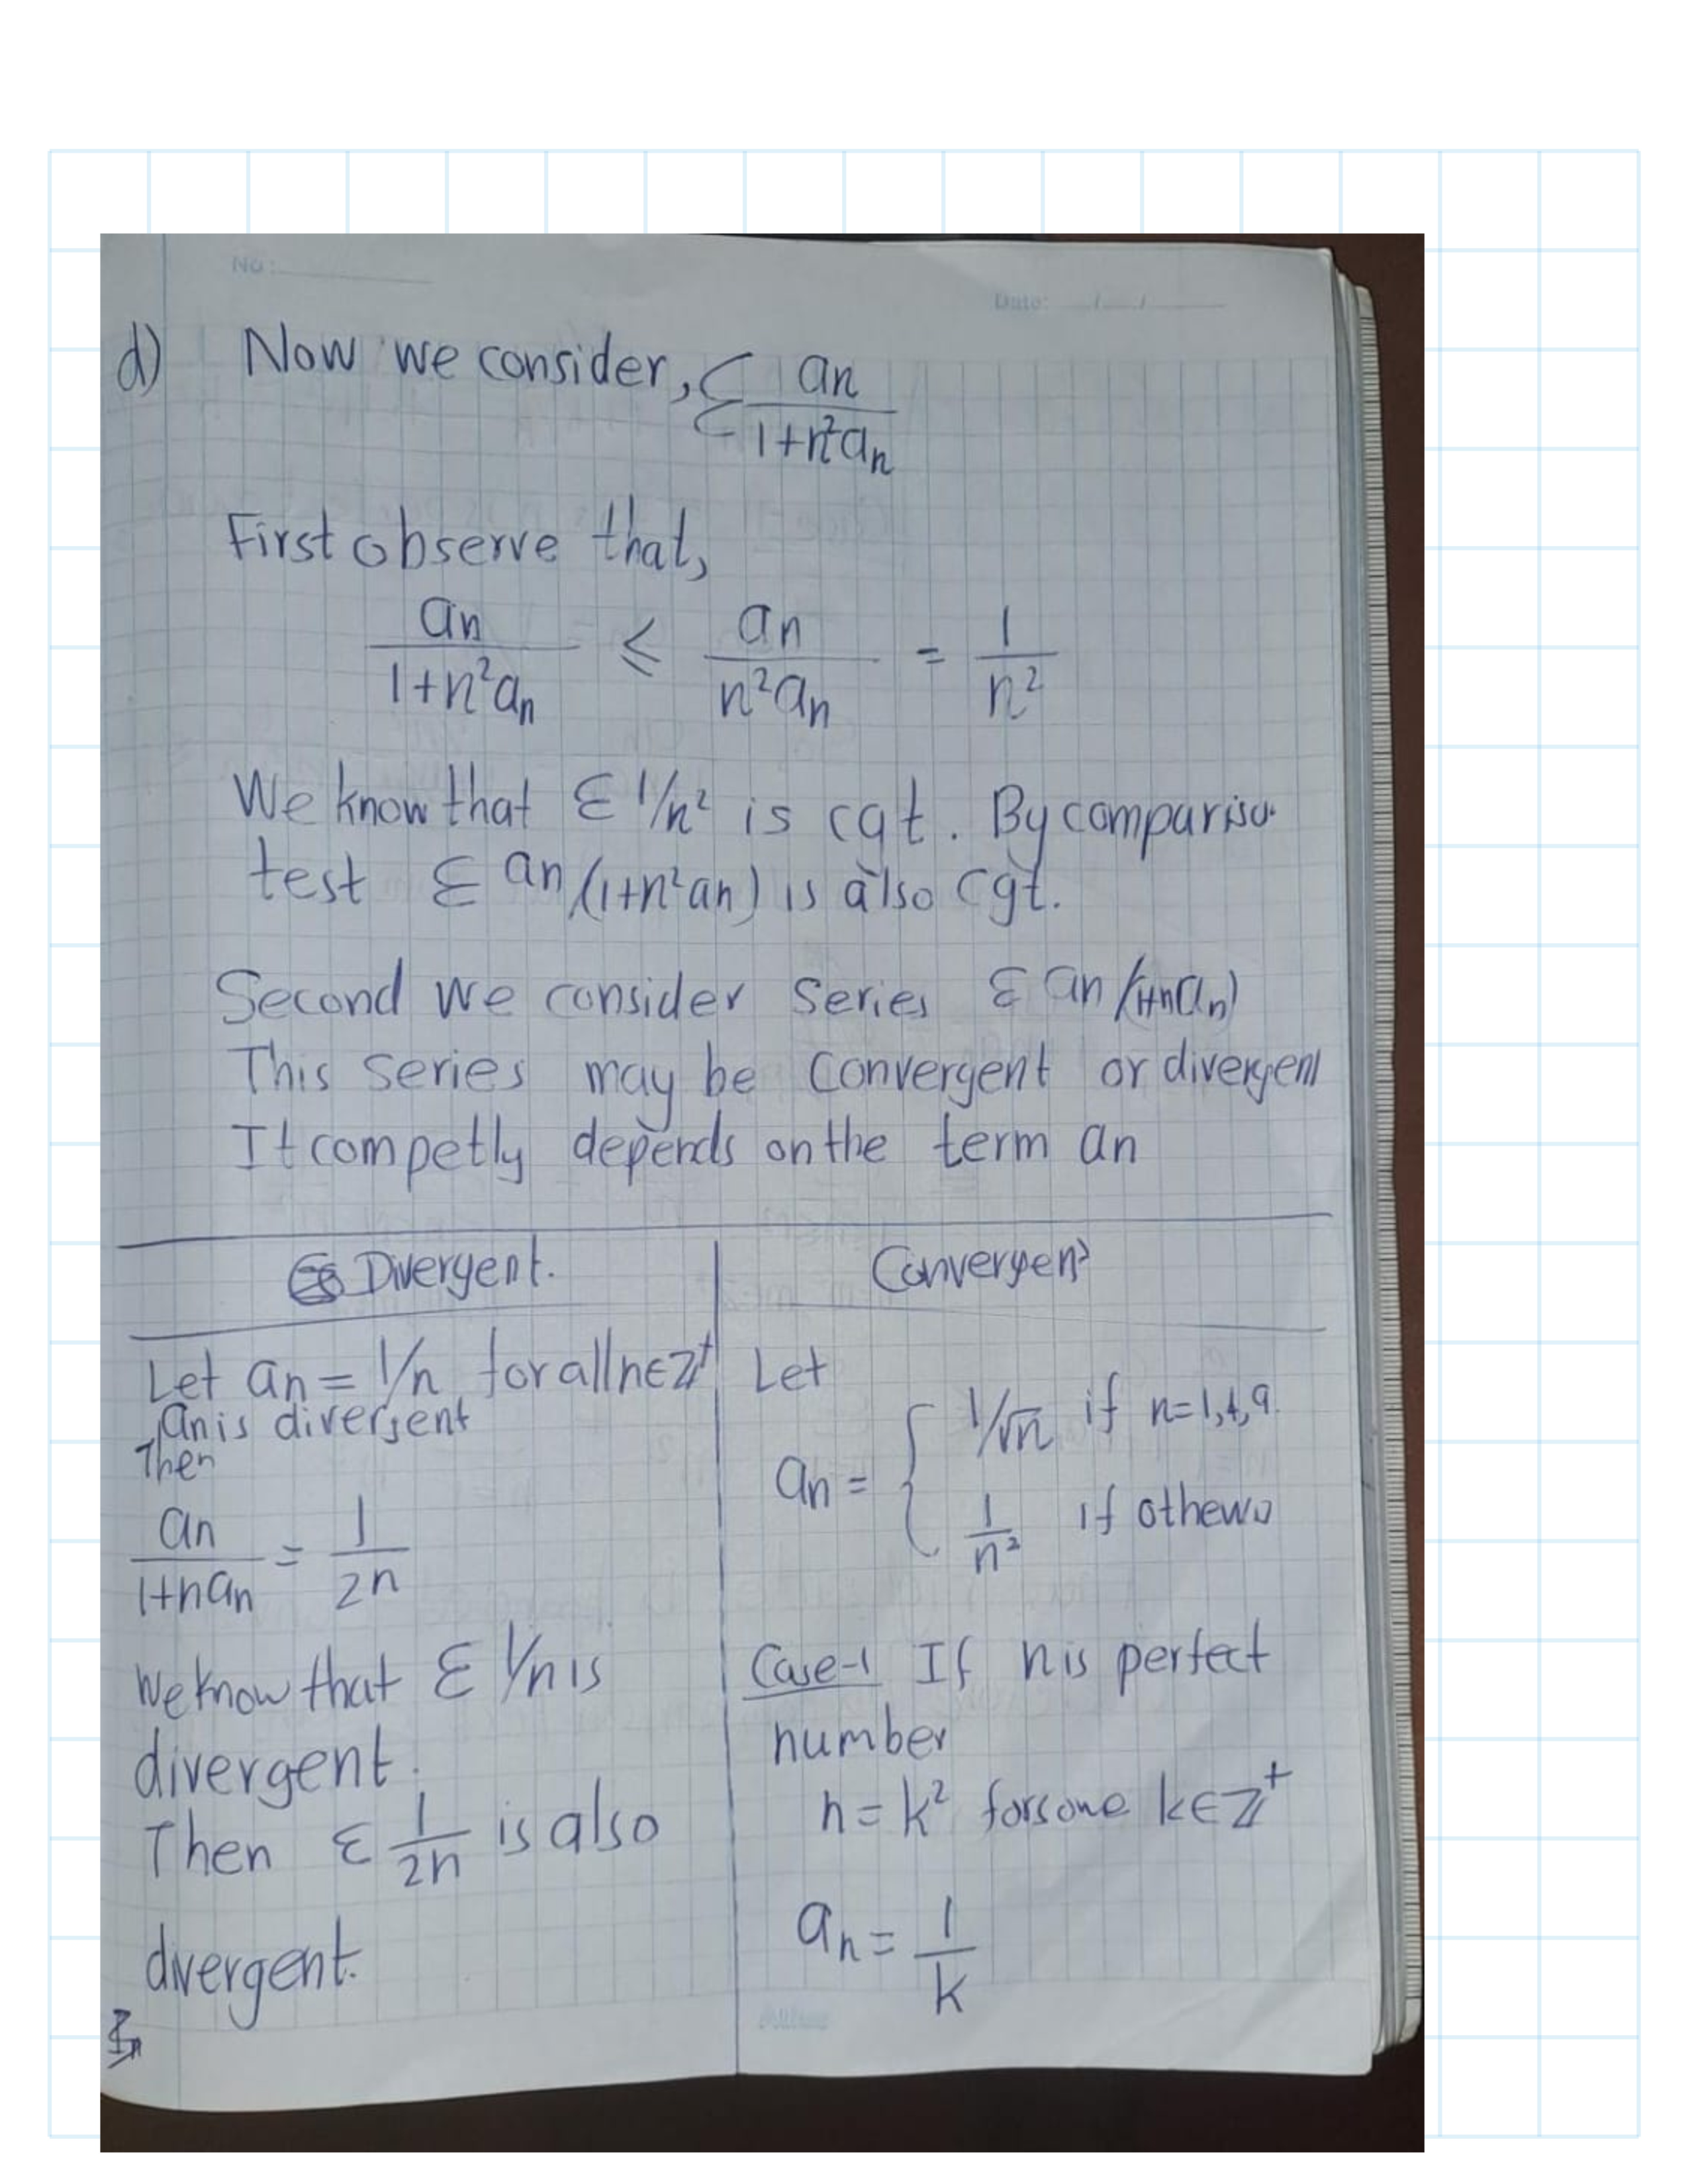 No:
Date: / /
d) Now we consider, Σ an/(1+n²an)
First observe that,
an/(1+n²an) ≤ an/(n²an) = 1/n²
We know that Σ 1/n² is cgt. By comparison
test Σ an/(1+n²an) is also cgt.
Second we consider series Σ an/(1+nan)
This series may be convergent or divergent
It competly depends on the term an
Divergent.
Let an = 1/n for all n∈Z⁺
an is divergent
Then
an/(1+nan) = 1/2n
We know that Σ 1/n is
divergent.
Then Σ 1/2n is also
divergent.
Convergent
Let
an = { 1/√n if n=1,4,9.
1/n² if othewi
Case-1 If n is perfect
number
n = k² for some k∈Z⁺
an = 1/k